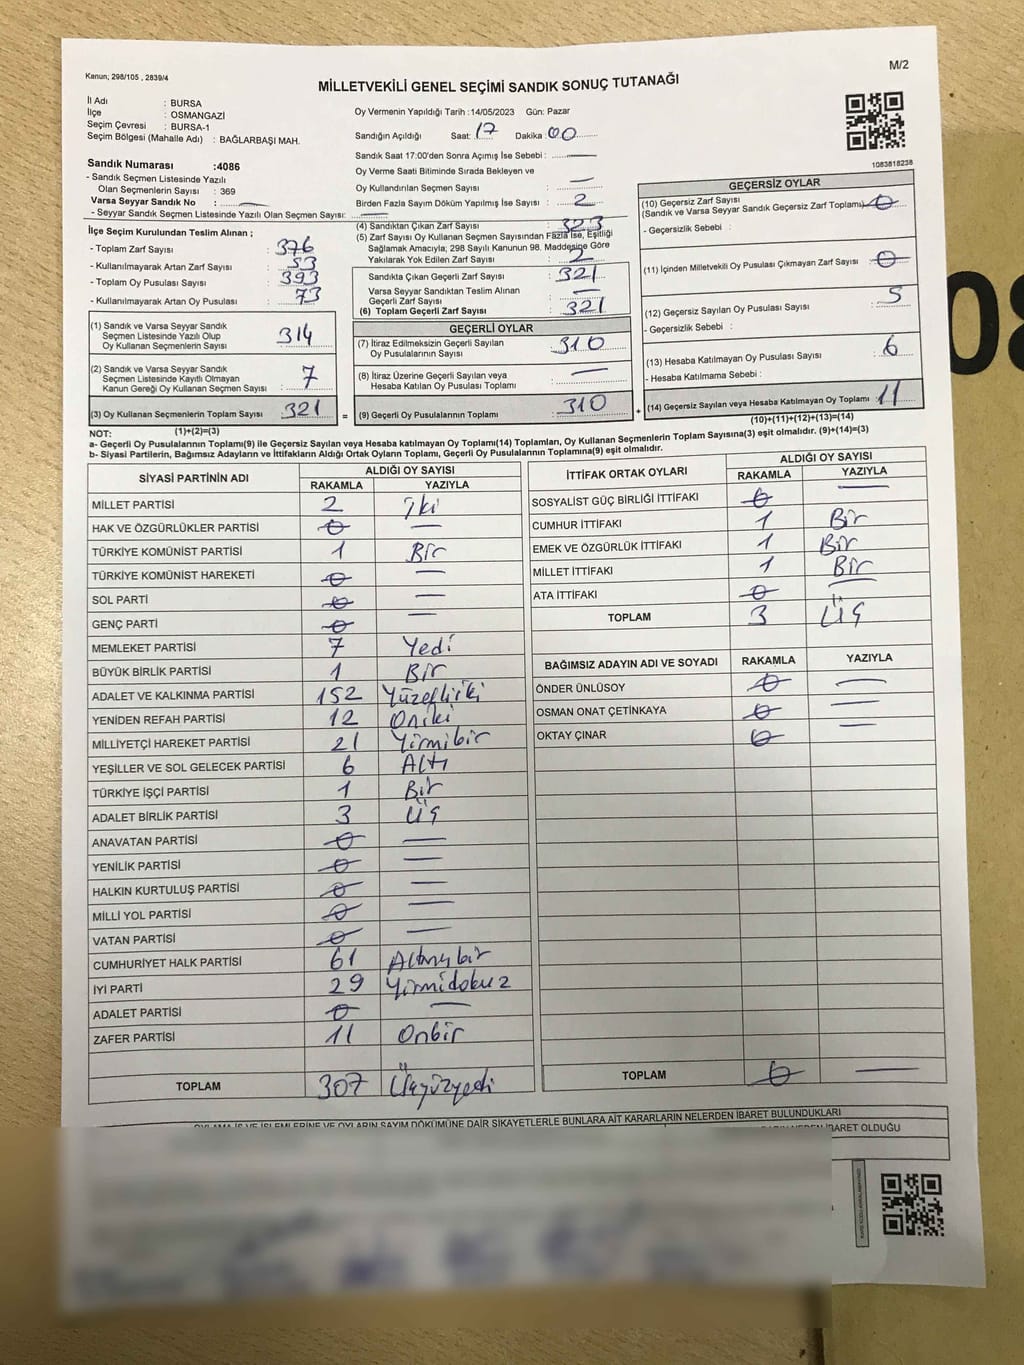 Kanun; 298/105 , 2839/4
M/2
MİLLETVEKİLİ GENEL SEÇİMİ SANDIK SONUÇ TUTANAĞI
İl Adı : BURSA
İlçe : OSMANGAZİ
Seçim Çevresi : BURSA-1
Seçim Bölgesi (Mahalle Adı) : BAĞLARBAŞI MAH.
Sandık Numarası :4086
- Sandık Seçmen Listesinde Yazılı
Olan Seçmenlerin Sayısı : 369
Varsa Seyyar Sandık No :
- Seyyar Sandık Seçmen Listesinde Yazılı Olan Seçmen Sayısı:
Oy Vermenin Yapıldığı Tarih :14/05/2023 Gün: Pazar
Sandığın Açıldığı Saat: 17 Dakika: 00
Sandık Saat 17:00'den Sonra Açımış İse Sebebi :
Oy Verme Saati Bitiminde Sırada Bekleyen ve
Oy Kullandırılan Seçmen Sayısı :
Birden Fazla Sayım Döküm Yapılmış İse Sayısı : 2
1083818238
İlçe Seçim Kurulundan Teslim Alınan ;
- Toplam Zarf Sayısı : 376
- Kullanılmayarak Artan Zarf Sayısı : 53
- Toplam Oy Pusulası Sayısı : 393
- Kullanılmayarak Artan Oy Pusulası : 73
(1) Sandık ve Varsa Seyyar Sandık
Seçmen Listesinde Yazılı Olup
Oy Kullanan Seçmenlerin Sayısı 314
(2) Sandık ve Varsa Seyyar Sandık
Seçmen Listesinde Kayıtlı Olmayan
Kanun Gereği Oy Kullanan Seçmen Sayısı 7
(3) Oy Kullanan Seçmenlerin Toplam Sayısı 321 =
(1)+(2)=(3)
(4) Sandıktan Çıkan Zarf Sayısı : 323
(5) Zarf Sayısı Oy Kullanan Seçmen Sayısından Fazla İse, Eşitliği
Sağlamak Amacıyla; 298 Sayılı Kanunun 98. Maddesine Göre
Yakılarak Yok Edilen Zarf Sayısı : 2
Sandıkta Çıkan Geçerli Zarf Sayısı : 321
Varsa Seyyar Sandıktan Teslim Alınan
Geçerli Zarf Sayısı :
(6) Toplam Geçerli Zarf Sayısı : 321
GEÇERLİ OYLAR
(7) İtiraz Edilmeksizin Geçerli Sayılan
Oy Pusulalarının Sayısı : 310
(8) İtiraz Üzerine Geçerli Sayılan veya
Hesaba Katılan Oy Pusulası Toplamı :
(9) Geçerli Oy Pusulalarının Toplamı : 310 +
GEÇERSİZ OYLAR
(10) Geçersiz Zarf Sayısı
(Sandık ve Varsa Seyyar Sandık Geçersiz Zarf Toplamı) 0
- Geçersizlik Sebebi :
(11) İçinden Milletvekili Oy Pusulası Çıkmayan Zarf Sayısı 0
(12) Geçersiz Sayılan Oy Pusulası Sayısı : 5
- Geçersizlik Sebebi :
(13) Hesaba Katılmayan Oy Pusulası Sayısı : 6
- Hesaba Katılmama Sebebi :
(14) Geçersiz Sayılan veya Hesaba Katılmayan Oy Toplamı : 11
(10)+(11)+(12)+(13)=(14)
NOT:
a- Geçerli Oy Pusulalarının Toplamı(9) ile Geçersiz Sayılan veya Hesaba katılmayan Oy Toplamı(14) Toplamları, Oy Kullanan Seçmenlerin Toplam Sayısına(3) eşit olmalıdır. (9)+(14)=(3)
b- Siyasi Partilerin, Bağımsız Adayların ve İttifakların Aldığı Ortak Oyların Toplamı, Geçerli Oy Pusulalarının Toplamına(9) eşit olmalıdır.
SİYASİ PARTİNİN ADI ALDIĞI OY SAYISI
RAKAMLA YAZIYLA
MİLLET PARTİSİ 2 İki
HAK VE ÖZGÜRLÜKLER PARTİSİ 0
TÜRKİYE KOMÜNİST PARTİSİ 1 Bir
TÜRKİYE KOMÜNİST HAREKETİ 0
SOL PARTİ 0
GENÇ PARTİ 0
MEMLEKET PARTİSİ 7 Yedi
BÜYÜK BİRLİK PARTİSİ 1 Bir
ADALET VE KALKINMA PARTİSİ 152 Yüzelliiki
YENİDEN REFAH PARTİSİ 12 Oniki
MİLLİYETÇİ HAREKET PARTİSİ 21 Yirmibir
YEŞİLLER VE SOL GELECEK PARTİSİ 6 Altı
TÜRKİYE İŞÇİ PARTİSİ 1 Bir
ADALET BİRLİK PARTİSİ 3 Üç
ANAVATAN PARTİSİ 0
YENİLİK PARTİSİ 0
HALKIN KURTULUŞ PARTİSİ 0
MİLLİ YOL PARTİSİ 0
VATAN PARTİSİ 0
CUMHURİYET HALK PARTİSİ 61 Altmışbir
İYİ PARTİ 29 Yirmidokuz
ADALET PARTİSİ 0
ZAFER PARTİSİ 11 Onbir
TOPLAM 307 Üçyüzyedi
İTTİFAK ORTAK OYLARI ALDIĞI OY SAYISI
RAKAMLA YAZIYLA
SOSYALİST GÜÇ BİRLİĞİ İTTİFAKI 0
CUMHUR İTTİFAKI 1 Bir
EMEK VE ÖZGÜRLÜK İTTİFAKI 1 Bir
MİLLET İTTİFAKI 1 Bir
ATA İTTİFAKI 0
TOPLAM 3 Üç
BAĞIMSIZ ADAYIN ADI VE SOYADI RAKAMLA YAZIYLA
ÖNDER ÜNLÜSOY 0
OSMAN ONAT ÇETİNKAYA 0
OKTAY ÇINAR 0
TOPLAM 0
OYLAMA İŞ VE İŞLEMLERİNE VE OYLARIN SAYIM DÖKÜMÜNE DAİR ŞİKAYETLERLE BUNLARA AİT KARARLARIN NELERDEN İBARET BULUNDUKLARI
İBARET OLDUĞU
08